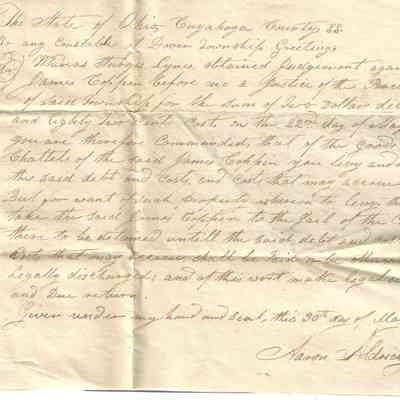 The State of Ohio Cuyahoga County, SS.
To any Constable of Dover township Greeting,
Whereas Sturges Lynes obtained Judgement again
James Coffin before me a Justice of the Peace
of said township for the sum of two dollars de
and eighty two cents costs on the 22nd day of May
you are therefore Commanded, that of the Goods
Chattels of the said James Coffin you levy and
the said debt and costs, and costs that may accrue
But for want of such property whereon to levy the
take the said James Coffin to the Jail of the C
there to be detained untill the said debt and
Costs that may accrue shall be paid or be otherw
Legally discharged; and of this writ make legal
and Due return.
Given under my hand and seal, this 30th day of Ma
Aaron Aldrich